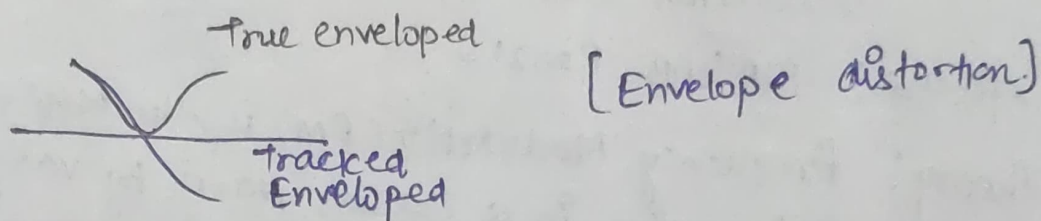 true enveloped
[Envelope distortion]
tracked
Enveloped